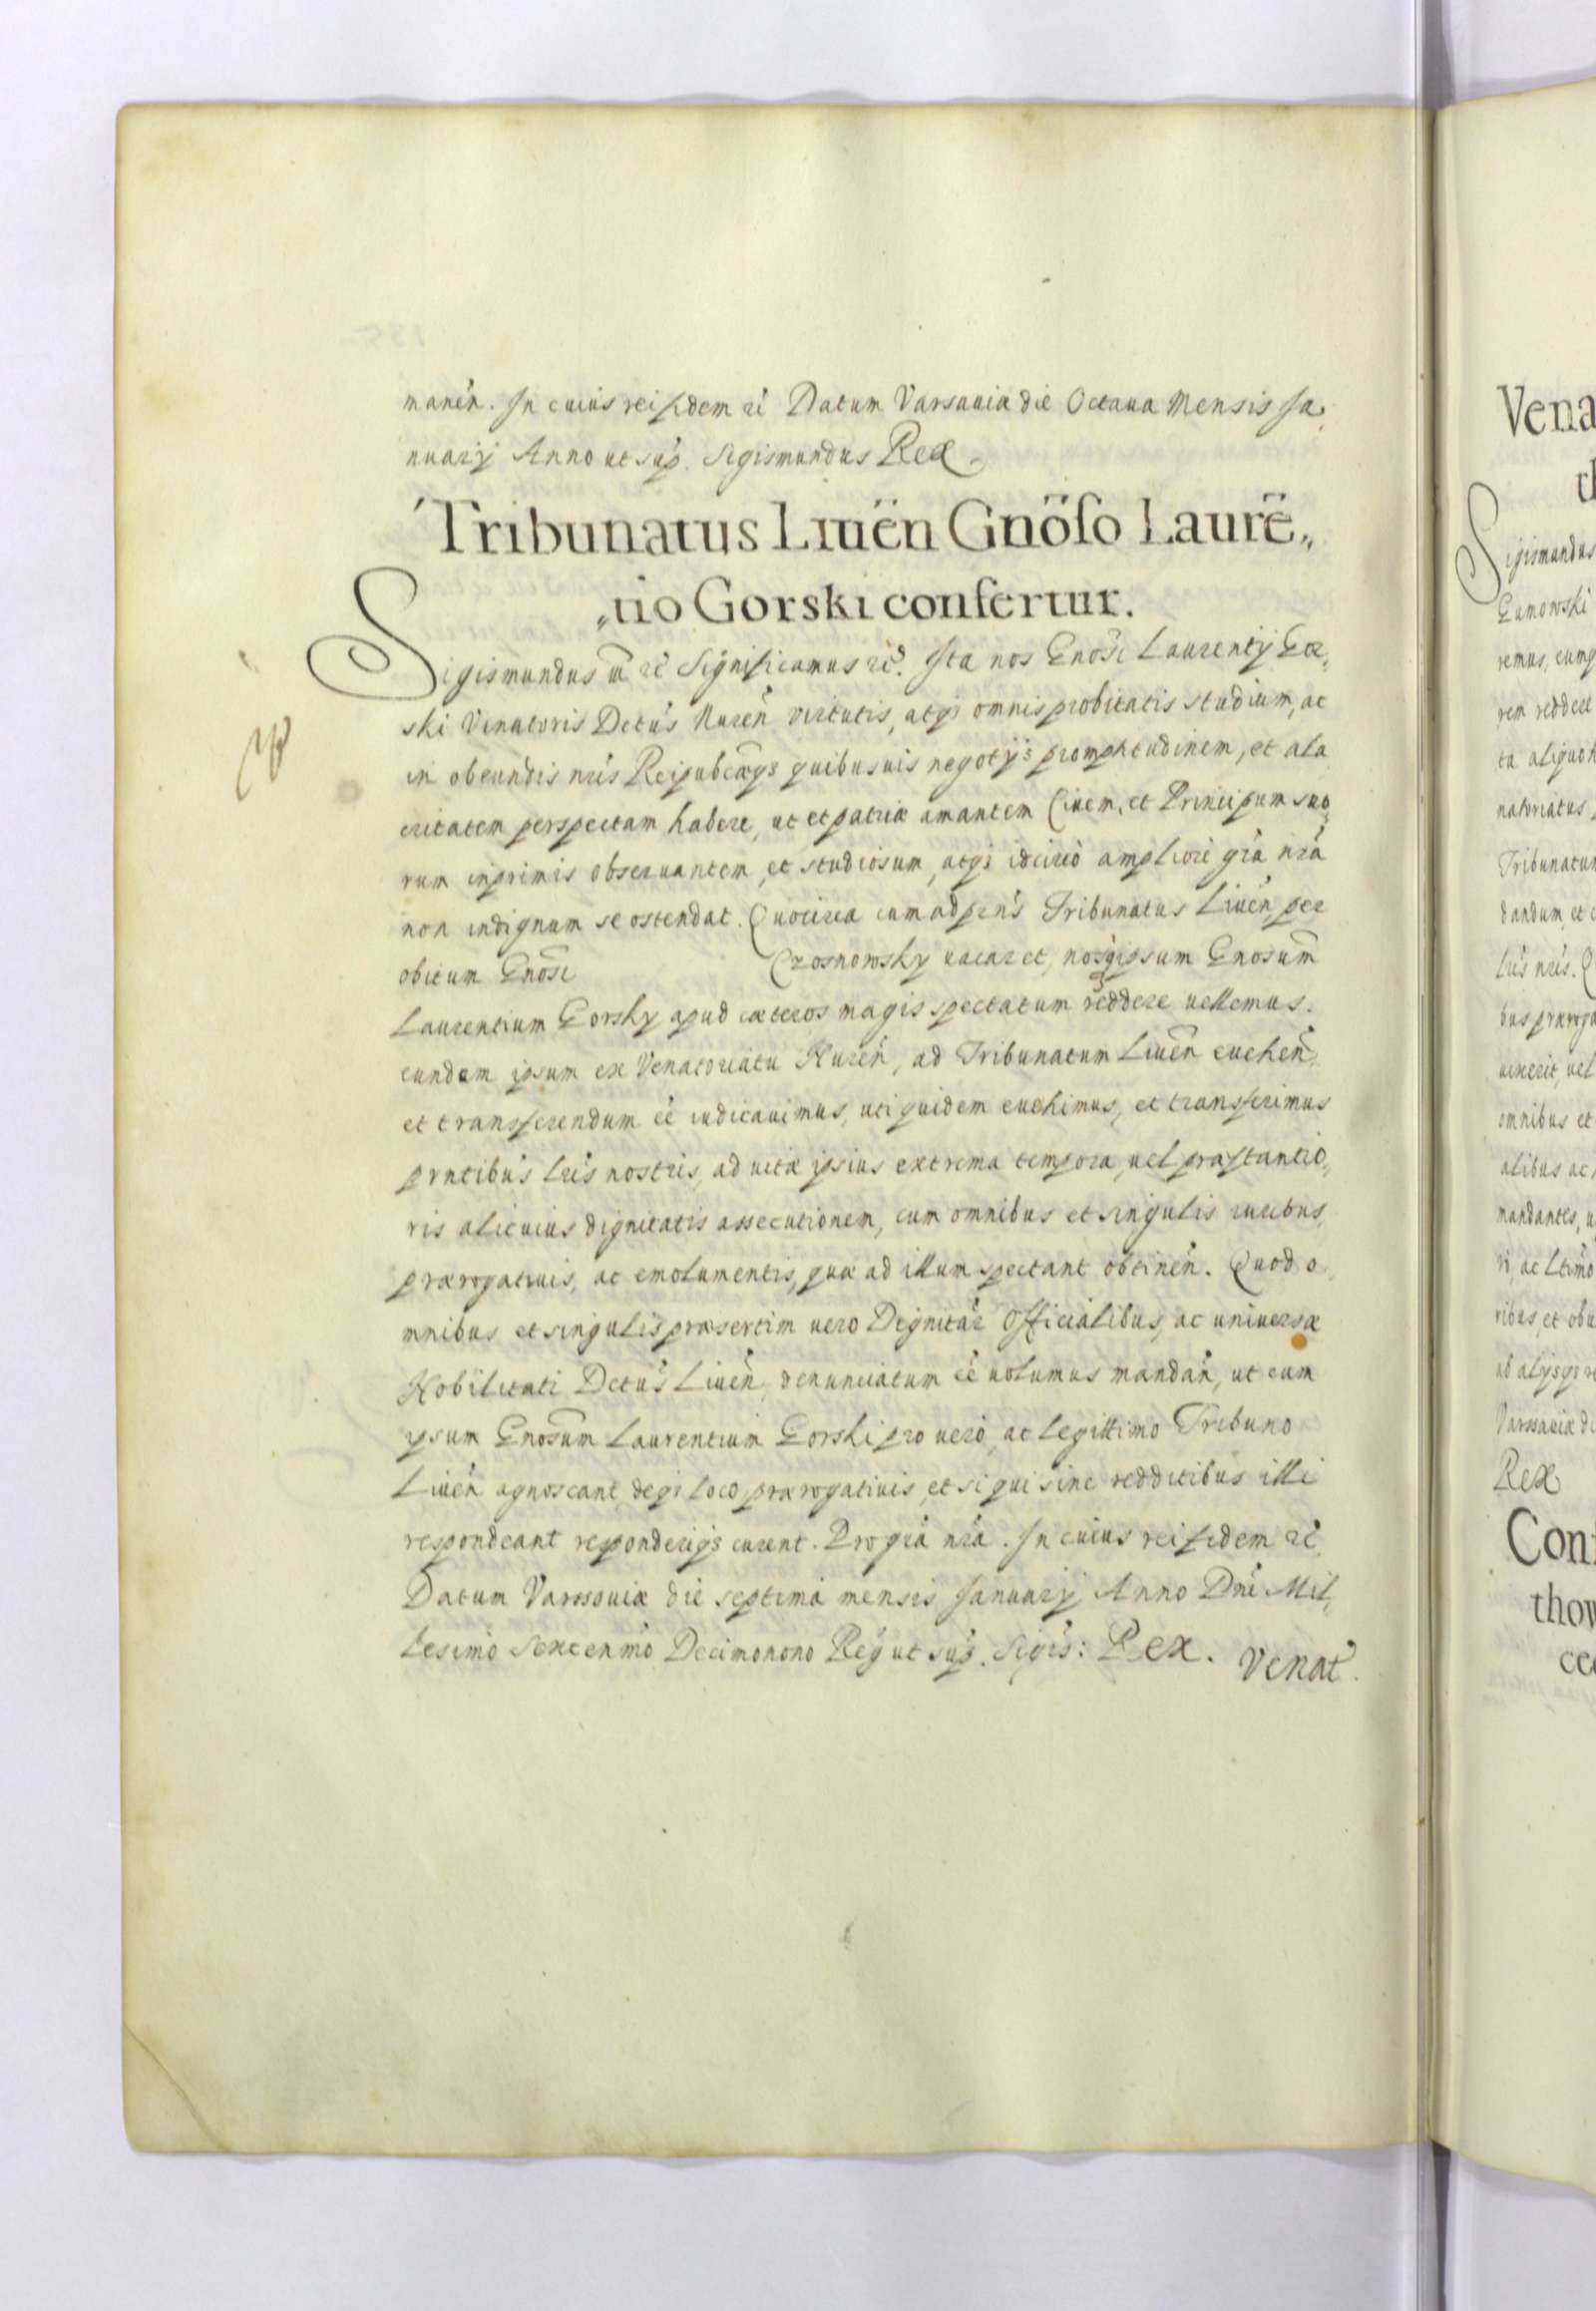 manén. In cuius rei fidem rč Datum Varsauiæ die Octaua Mensis Ja,
nuarij Anno ut sup. Sigismundus Rex
Tribunatus Liuën Gnöso Laurē„
„tio Gorski confertur.
Sigismundus iii rč Significamus rč. Ita nos Gnosi Laurentij Gor,
ski Venatoris Dctus Nureń virtutis, atq; omnis probitatis studium, ac
in obeundis nris Reipubcæq; quibusuis negotijs promptitudinem, et ala
critatem perspectam habere, ut et patriæ amantem Ciuem, et Principum suo,
rum inprimis obseruantem, et studiosum, atq; idcirco ampliore gra nra
non indignum se ostendat. Quocirca cum ad prns Tribunatus Liuen per
obitum Gnosi Czosnowsky uacaret, nosq; ipsum Gnosum
Laurentium Gorsky apud cæteros magis spectatum reddere uellemus.
eundem ipsum ex Venatoriatu Nureń, ad Tribunatum Liuen euehen
et transferendum eē iudicauimus, uti quidem euehimus, et transferimus
prntibus lris nostris, ad uitæ ipsius extrema tempora, uel præstantio,
ris alicuius dignitatis assecutionem, cum omnibus et singulis iuribus,
prærogatiuis, ac emolumentis, quæ ad illum spectant obtineń. Quod o
mnibus et singulis præsertim uero Dignitar Officialibus, ac uniuersæ
Nobilitati Dctus Liueń, denunciatum eē uolumus mandań, ut eum
ipsum Gnosum Laurentium Gorski pro uero, ac legittimo Tribuno
Liueń agnoscant, deq; loco prærogatiuis, et si qui sint redditibus illi
respondeant responderiq; curent. Pro gra nra. In cuius rei fidem rč
Datum Varssouiæ die septima mensis January Anno Dni Mil,
lesimo Sexcenmo Decimonono Reg ut sup. Sigis: Rex. Venat.
Vena
Sigismundus
Gumowski
remus, cumq
rem reddere
ta aliquot
natoriatus
Tribunatum
dandum, et
lris nris. Q
bus præroga
uixerit, uel
omnibus et
alibus ac
mandantes, u
ri, ac ltimo
ribus, et obu
ab alijsq; re
Varsauiæ di
Rex
Con
thow